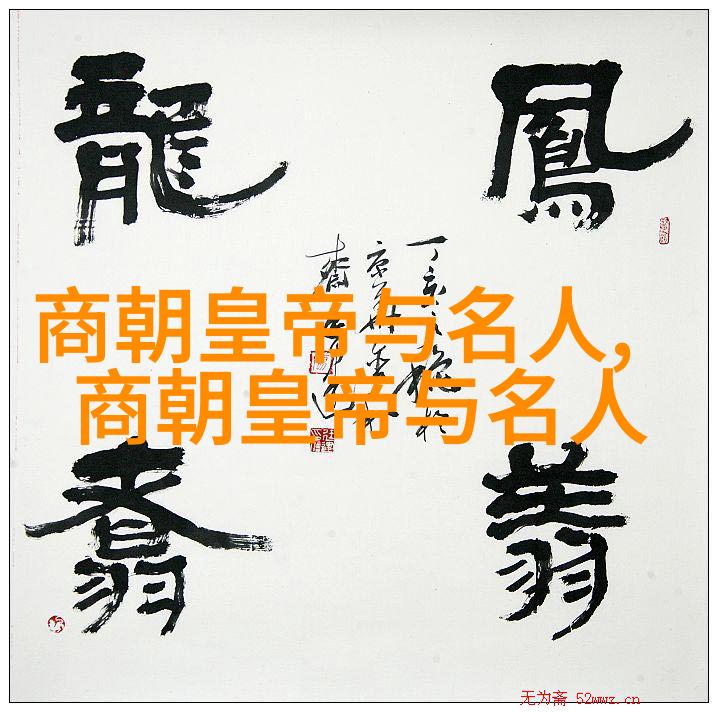 鳳翔
龍翥
丁亥之秋於
商朝皇帝与名人,
商朝皇帝与名人
无为斋 52wwz.cn